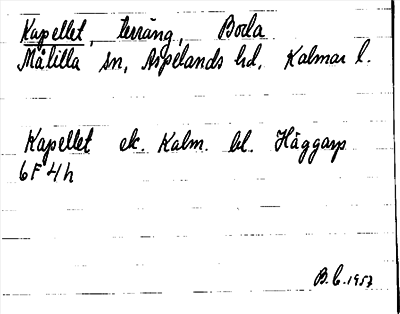 Kapellet, terräng, Boda
Målilla sn, Aspelands hd, Kalmar l.
Kapellet ek. Kalm. bl. Häggarp
6F4h
B.C. 1957